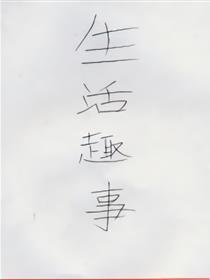 生活趣事